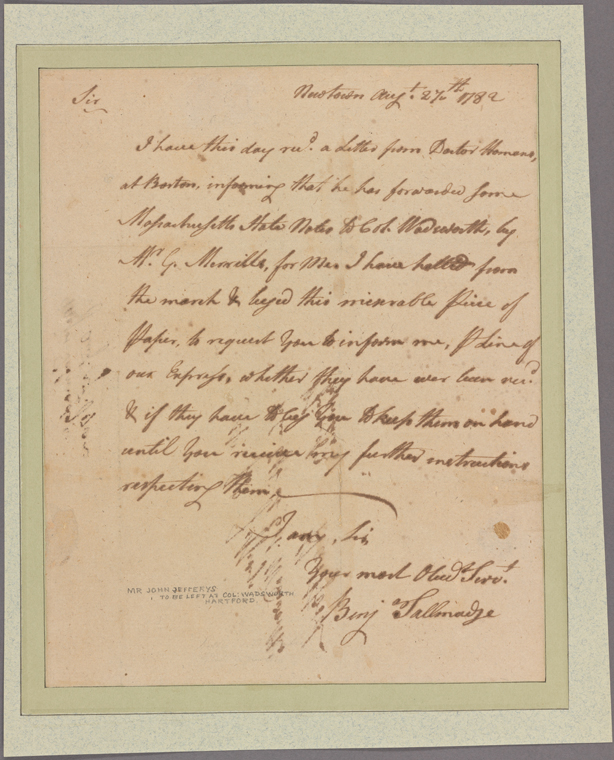 Newtown Augt. 27th 1782
Sir
I have this day recd. a Letter from Doctor Homans,
at Boston, informing that he has forwarded some
Massachusetts State Notes to Col. Wadsworth, by
Mr. G. Merrills, for Me. I have halted from
the march & beged this miserable Piece of
Paper, to request You to inform me, Pr Line of
our Express, whether they have ever been recd.
& if they have to beg You to keep them on hand
until You receive my further instructions
respecting them,
I am, Sir
Your most Obedt. Servt.
Benj Tallmadge
MR JOHN JEFFERYS
TO BE LEFT AT COL: WADSWORTH
HARTFORD